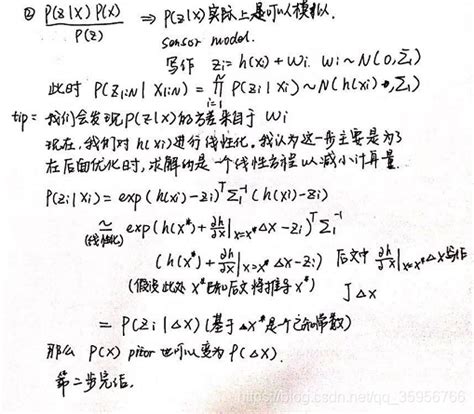 ② P(z|x) P(x) / P(z) ⇒ P(z|x)实际上是可以模拟.
sensor model.
写作 zi = h(xi) + wi. wi ~ N(0, Σ1)
此时 P(z1:N | x1:N) = ∏ i=1 P(zi | xi) ~ N(h(xi), Σ1)
tip: 我们会发现P(z|x)的方差来自于 wi
现在, 我们对 h(xi) 进行线性化, 我认为这一步主要是为了
在后面优化时, 求解的是一个线性方程以减小计算量.
P(zi|xi) = exp (h(xi) - zi)ᵀ Σ1⁻¹ (h(xi) - zi)
≃ (线性化) exp (h(x*) + ∂h/∂x|x=x* Δx - zi)ᵀ Σ1⁻¹
(h(x*) + ∂h/∂x|x=x* Δx - zi) 后文中 ∂h/∂x|x=x* Δx 写作
(假设此处 x* 已知后文将推导 x*) J Δx
= P(zi | Δx) (基于 x* 是个已知常数)
那么 P(x) pitor 也可以变为 P(Δx).
第二步完结.
https://blog.csdn.net/qq_35956766